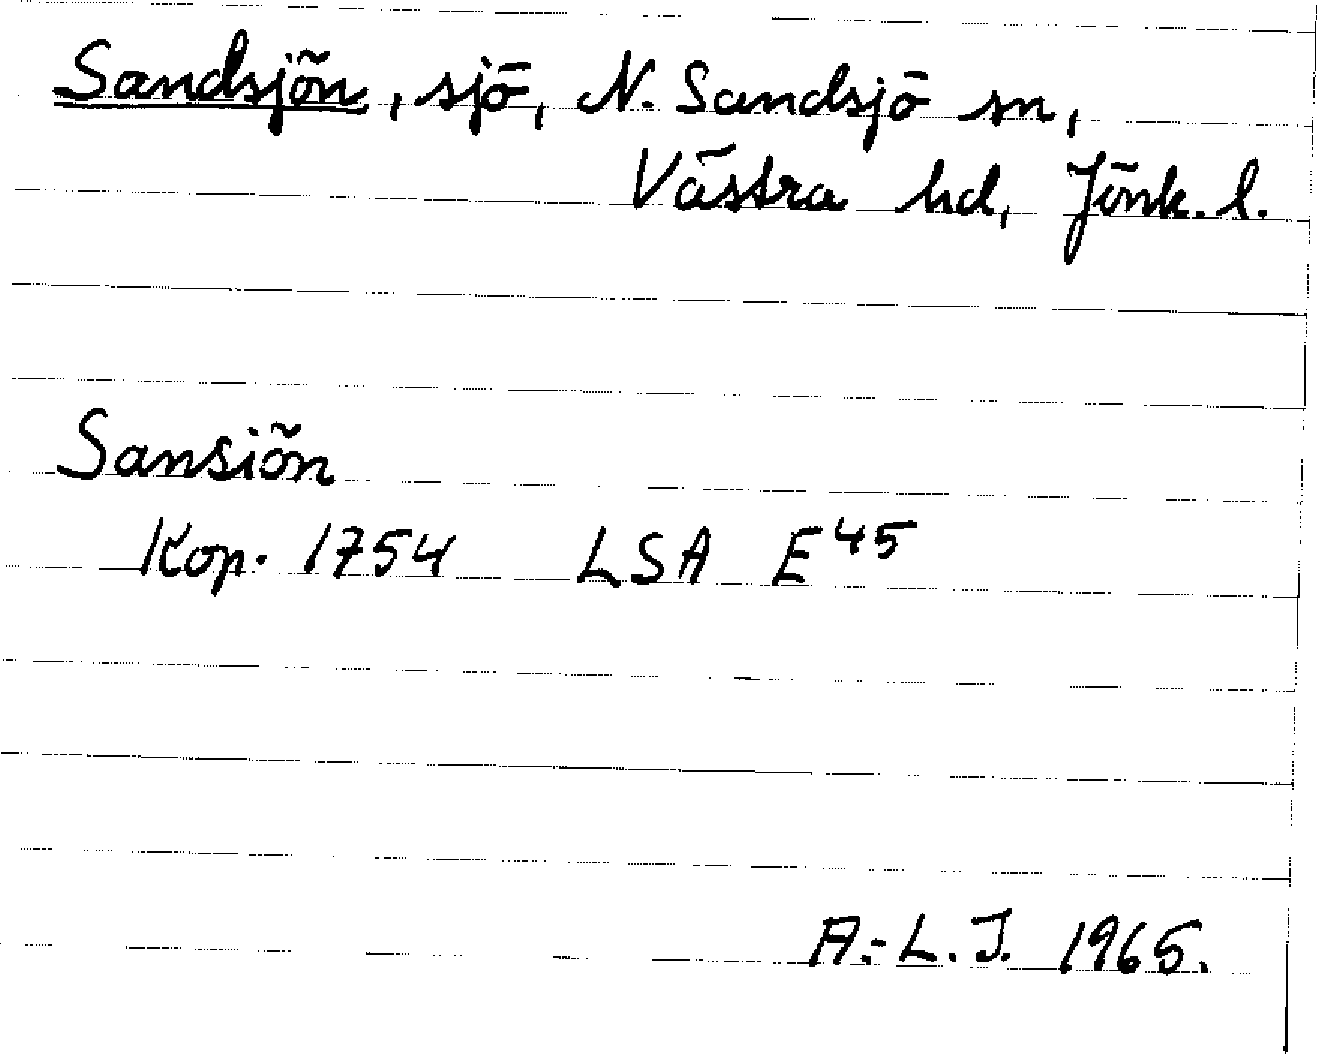 Sandsjön, sjö, N. Sandsjö sn,
Västra hd, Jönk. l.
Sansiön
Kop. 1754 LSA E45
A.-L. J. 1965.